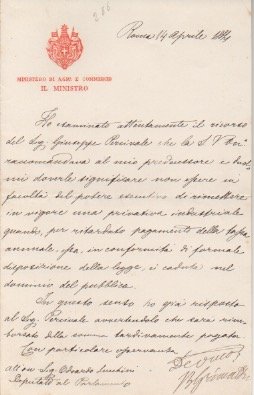 286
Roma 14 Aprile 1884
MINISTERO DI AGRA E COMMERCIO
IL MINISTRO
Ho esaminato attentamente il ricorso
del Sig. Giuseppe Percivale che la S. V.
raccomandava al mio predecessore e
mi doverle significare non essere in
facoltà del potere esecutivo di rimettere
in vigore una privativa industriale
quando, per ritardato pagamento della tassa
annuale, essa, in conformità di formale
disposizione della legge, è caduta nel
dominio del pubblico.
In questo senso ho già risposto
al Sig. Percivale avvertendolo che sarà rim-
borsato della somma tardivamente pagata.
Con particolare osservanza
All'on. Sig. Odoardo Luchini
Deputato al Parlamento
Devmo
B. Grimaldi